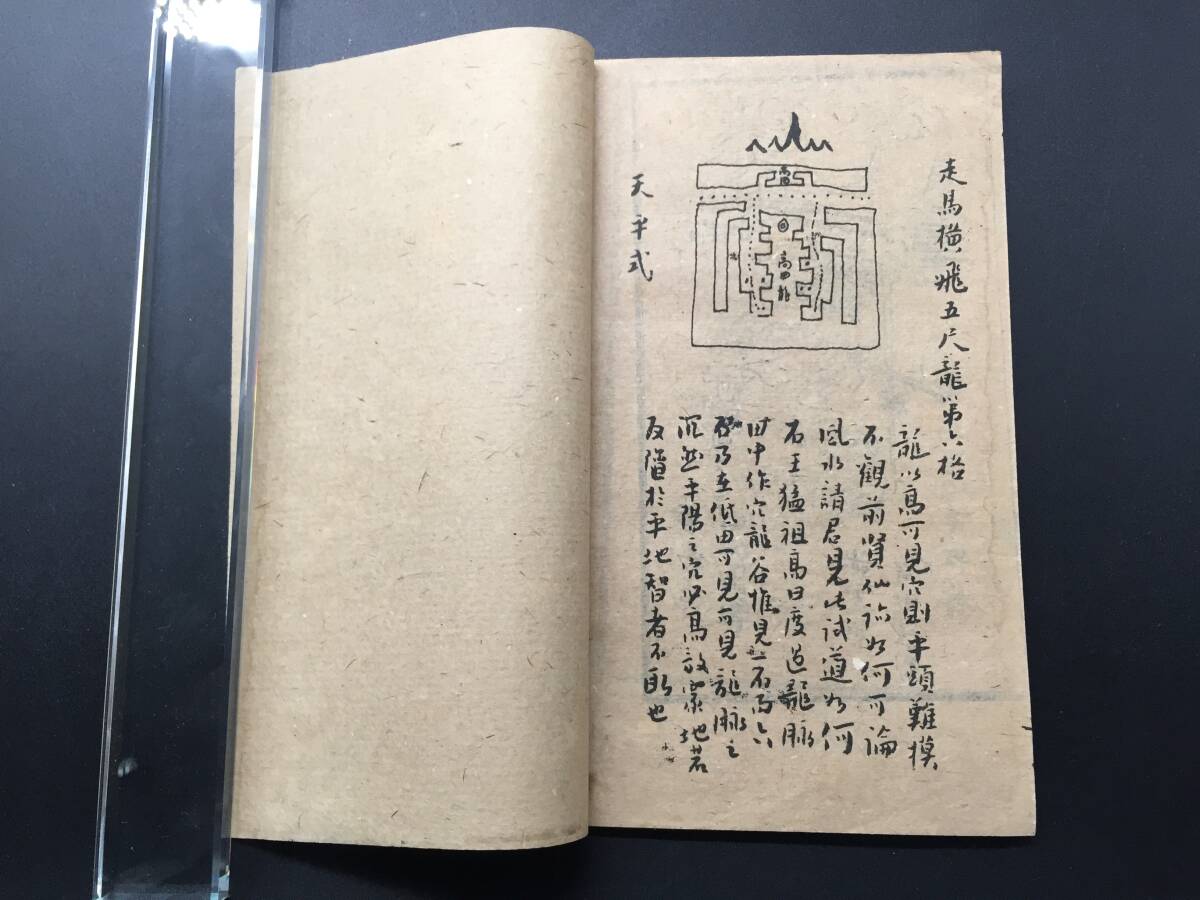 走馬橫飛五尺龍第六格
龍以高可見穴則平頭難摸
不觀前賢仙訪如何可論
風水請君見此試道如何
石王猛祖高田度過龍脉
田中作穴龍谷惟見一石
乃在低田可見可見龍脉之
沉然平陽之穴必高放窩地若
反陷於平地智者不取也
天平式
高田
高田龍